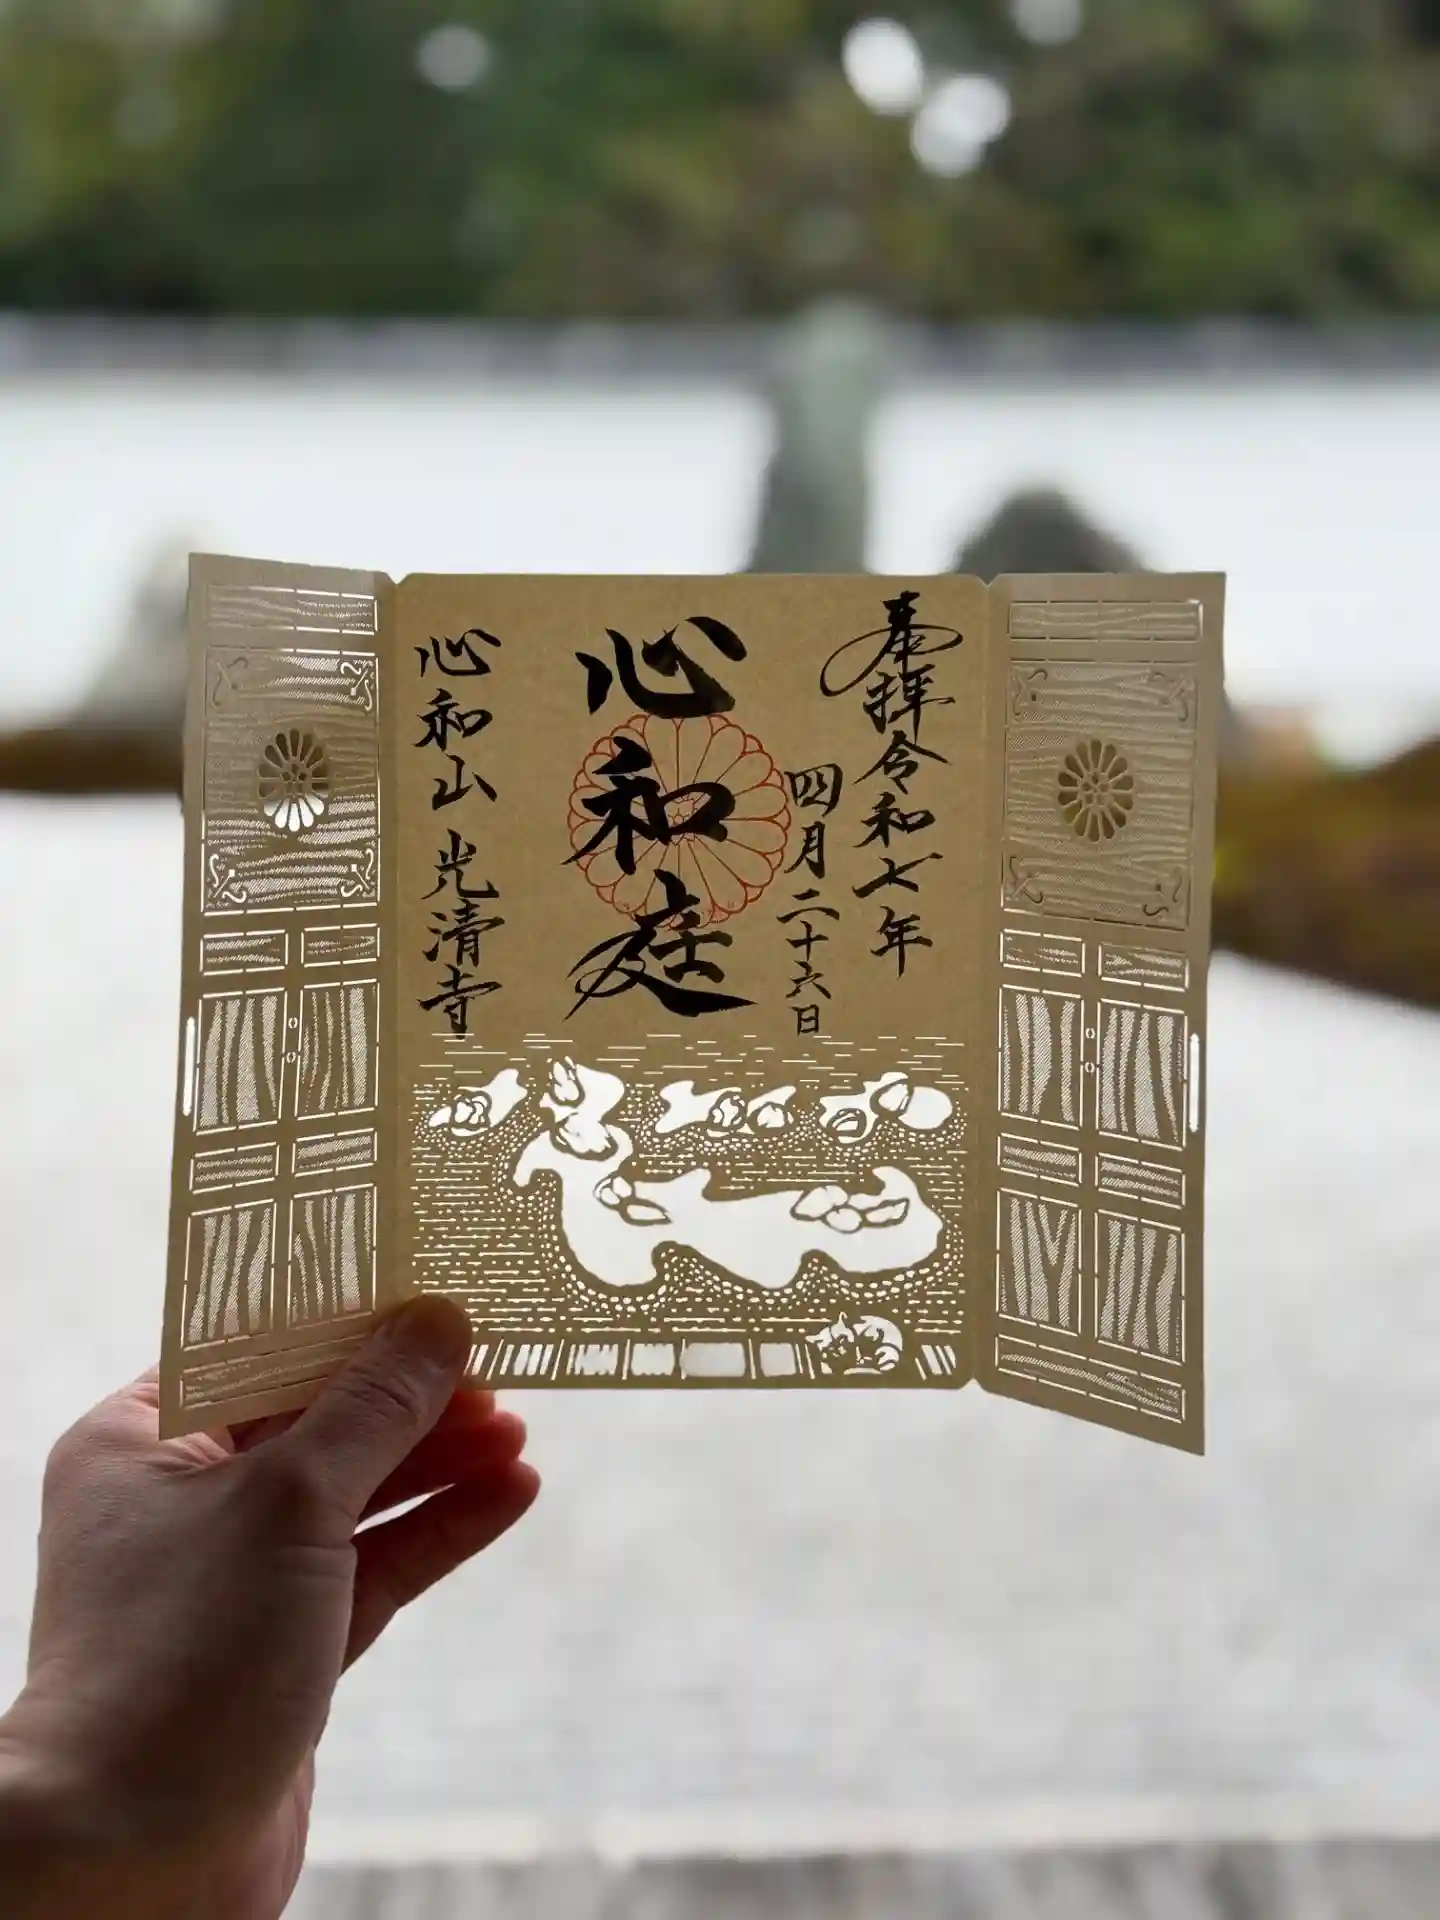 奉拝 令和七年
四月二十六日
心和庭
心和山 光清寺